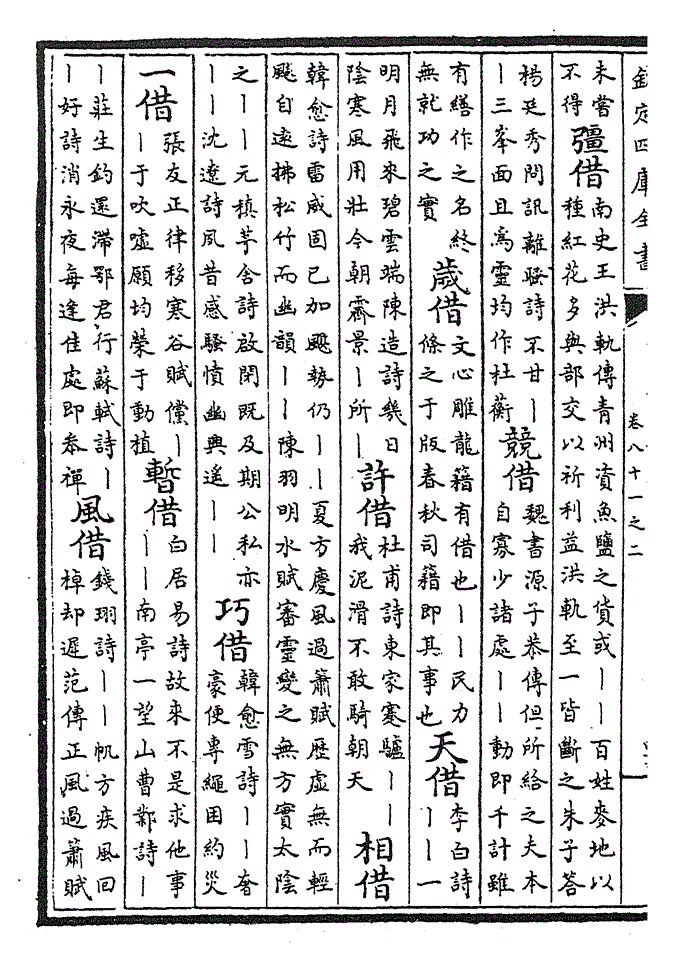 欽定四庫全書
卷八十一之二
未嘗
不得
彊借
南史王洪軌傳青州資魚鹽之貨或――百姓麥地以
種紅花多與部交以祈利益洪軌至一皆斷之朱子答
楊廷秀問訊離騷詩不甘―
―三峯面且爲靈均作杜蘅
競借
魏書源子恭傳但所給之夫本
自寡少諸處――動即千計雖
有繕作之名終
無就功之實
歲借
文心雕龍籍有借也――民力
條之于版春秋司籍即其事也
天借
李白詩
――一
明月飛來碧雲端陳造詩幾日
陰寒風用壯今朝霽景―所―
許借
杜甫詩東家蹇驢――
我泥滑不敢騎朝天
相借
韓愈詩雷威固已加颶勢仍――夏方慶風過簫賦歷虛無而輕
颺自遠拂松竹而幽韻――陳羽明水賦審靈變之無方實太陰
之――元稹茅舍詩啟閉既及期公私亦
――沈遼詩夙昔感騷憤幽興遥――
巧借
韓愈雪詩――奢
豪便專繩困約災
一借
張友正律移寒谷賦儻―
―于吹噓願均榮于動植
暫借
白居易詩故來不是求他事
――南亭一望山曹鄴詩―
―莊生釣還滯鄂君行蘇軾詩―
―好詩消永夜每逢佳處即叅禪
風借
錢珝詩――帆方疾風回
棹却遲范傳正風過簫賦